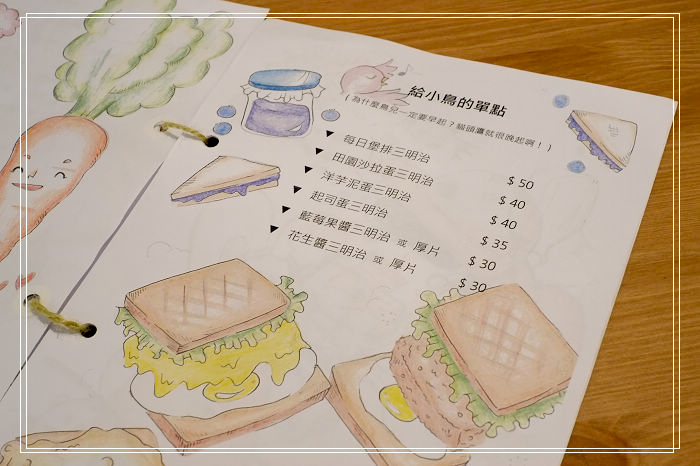 給小鳥的單點
(為什麼鳥兒一定要早起？貓頭鷹就很晚起啊！)
每日堡排三明治 $50
田園沙拉蛋三明治 $40
洋芋泥蛋三明治 $40
起司蛋三明治 $35
藍莓果醬三明治 或 厚片 $30
花生醬三明治 或 厚片 $30